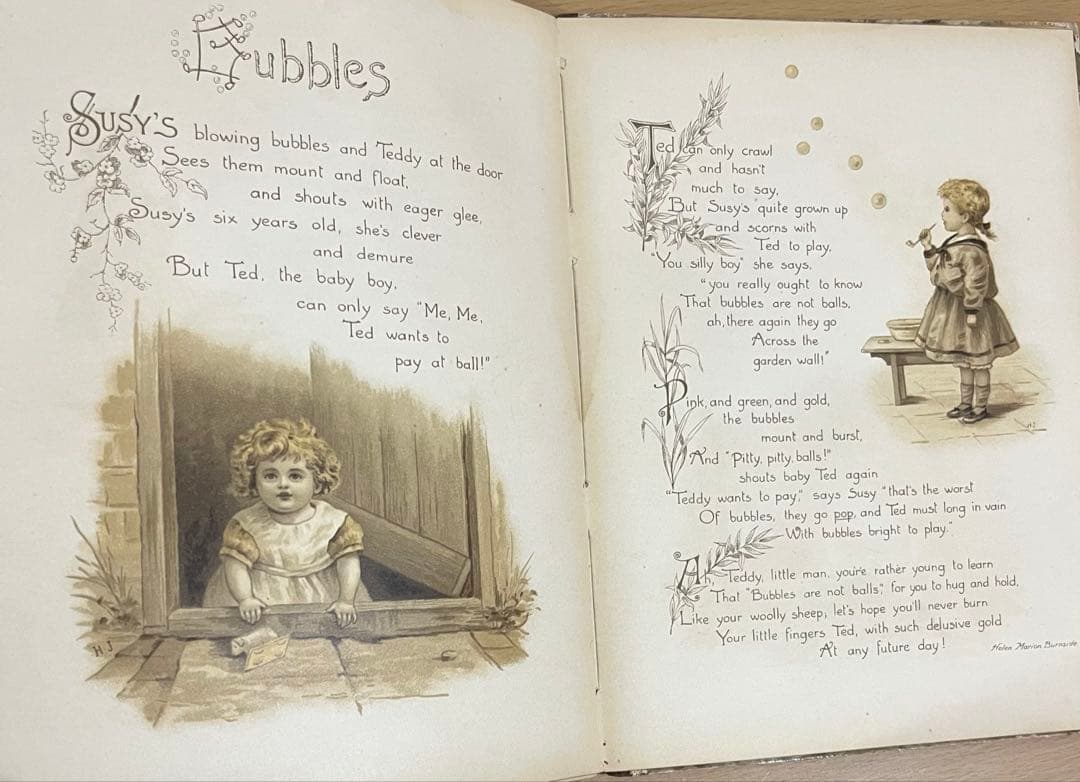 Bubbles
SUSY'S blowing bubbles and Teddy at the door
Sees them mount and float,
and shouts with eager glee,
Susy's six years old, she's clever
and demure
But Ted, the baby boy,
can only say "Me, Me,
Ted wants to
pay at ball!"
H J
Ted can only crawl
and hasn't
much to say,
But Susy's quite grown up
and scorns with
Ted to play,
"You silly boy" she says,
"you really ought to know
That bubbles are not balls,
ah, there again they go
Across the
garden wall!"
Pink, and green, and gold,
the bubbles
mount and burst,
And "Pitty, pitty, balls!"
shouts baby Ted again
"Teddy wants to pay," says Susy "that's the worst
Of bubbles, they go pop, and Ted must long in vain
With bubbles bright to play."
Ah, Teddy, little man, you're rather young to learn
That "Bubbles are not balls," for you to hug and hold,
Like your woolly sheep; let's hope you'll never burn
Your little fingers Ted, with such delusive gold
At any future day!
Helen Marion Burnside.
HJ